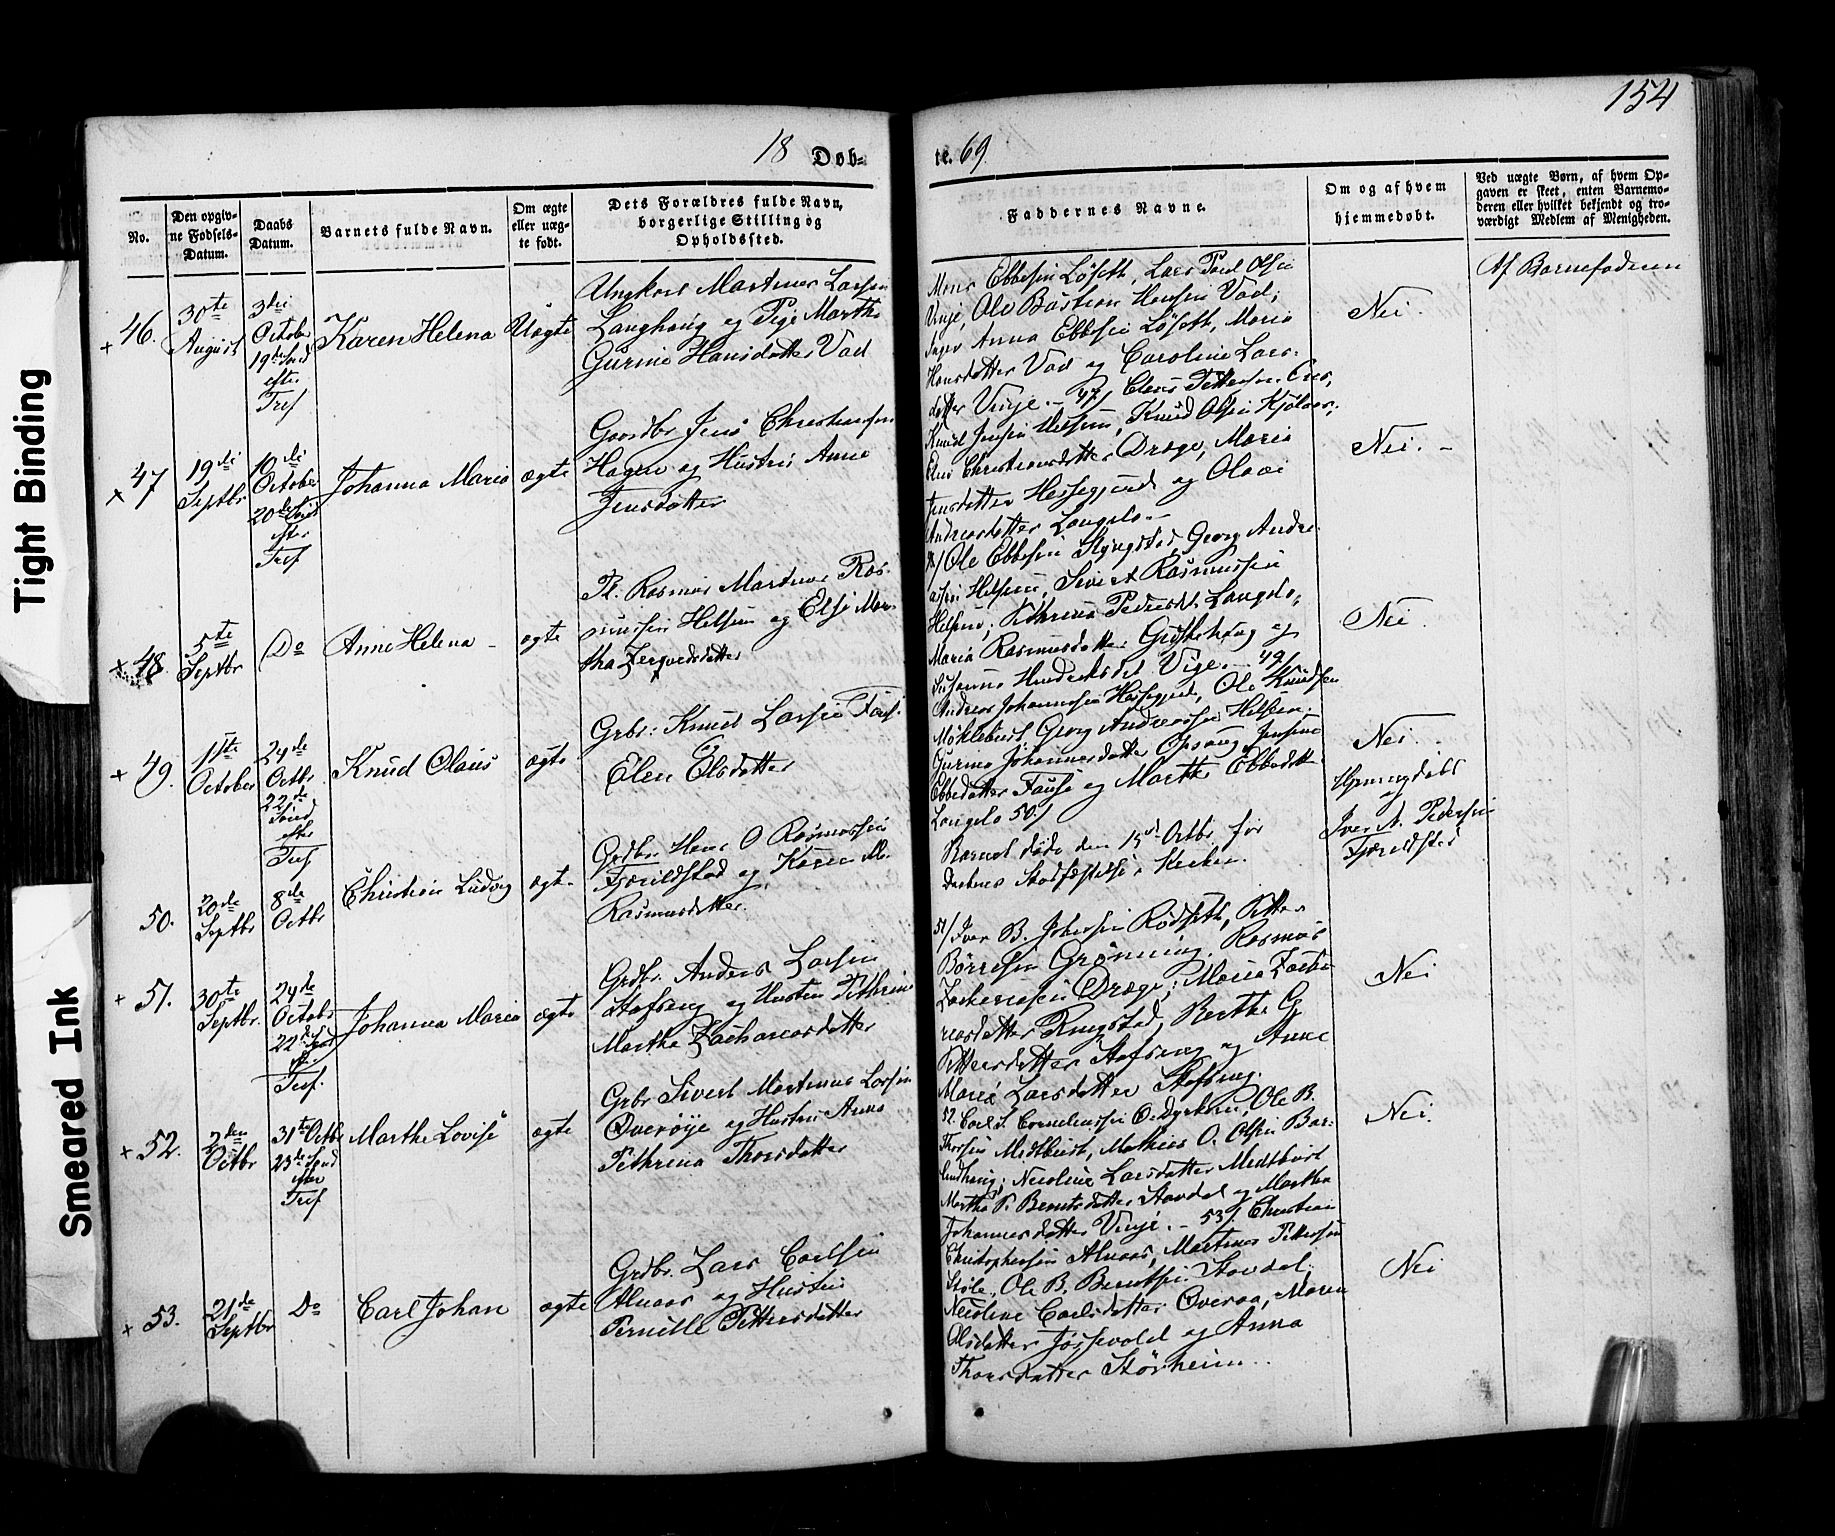 154
18 Døb-
te. 69.
No.
Den opgiv-
ne Fødsels-
Datum.
Daabs
Datum.
Barnets fulde Navn.
Om ægte
eller uæg-
te født.
Dets Forældres fulde Navn,
borgerlige Stilling og
Opholdssted.
Faddernes Navne.
Om og af hvem
hjemmedøbt.
Ved uægte Børn, af hvem Op-
gaven er skeet, enten Barnemo-
deren eller hvilket bekjendt og tro-
værdigt Medlem af Menigheden.
+ 46.
30te
August
3die
October
19de Sød
efter
Tref.
Karen Helena
Uægte
Ungkarl Martinus Larsen
Langhaug og Pige Marthe
Gurine Hansdatter Vad
Mons Ebbesen Løseth, Lars Paul Olsen
Vinje, Ole Bastian Hansen Vad;
Anna Ebbesen Løseth, Maria
Hansdatter Vad og Caroline Lars-
datter Vinje. - 47/ Claus Pettersen
Nei.
Af Barnefaderen
x 47
19de
Septbr
10de
October
20de Sønd
efter
Tref
Johanna Maria
ægte
Gaardbr Jens Christiansen
Hagen og Hustru Anne
Jensdatter
Knud Jensen Helsem, Knud Olsen
Christiansdatter Drage, Maria
Jensdatter Hessegjerd og Olava
Andreasdatter Langelo.-
Nei. -
x 48.
5te
Septbr
Do
Anne Helena -
ægte
Pl. Rasmus Martinus Ras-
musen Helsem og Else Mar-
tha
/ Ole Ebbesen Ryngstad, Georg Andre-
asen Helsem, Sivert Rasmussen
Helsem; Pethrina Pedersdt. Langelo,
Maria Rasmusdatter og
Susanna Vige. - 49/
Nei
+ 49.
11te
October
24de
Octbr.
22de
Sønd
efter
Tref
Knud Olaus
ægte
Grbr: Knud Larsen
Elen Olsdatter
Andreas Johannesen Hessegjerd, Ole Knudsen
Møklebust, Georg Andreassen Helsem.
Gurine Johannesdatter Opsaug, Jensine
Ebbedatter Fause og Marthe Ebbedatter
Langelo 50/
Nei.
50.
20de
Septbr
8de
Octbr
Christian Ludvig
ægte
Grdbr. Hans O Rasmussen
Fjørildstad og Karen M.
Rasmusdatter.
Barnet døde den 15d Octbr. før
Daabens Stadfæstelse i Kirken.
Hjemmedøbt
af
Iver A. Pedersen
Fjørildstad
+ 51.
30te
Septbr.
24de
Octobr
22de Sønd
eft.
Tref.
Johanna Maria
ægte
Grdbr. Anders Larsen
Stafseng og Hustru Pethrine
Martha Zachariasdatter
51/ Iver B. Johnsen Rødseth, Petter
Børresen Grønning, Rasmus
Zachariasen Drage; Maria Zacha-
riasdatter Ringstad, Berthe G
Pettersdatter Stafseng og Anne
Maria Larsdatter Stafseng.
Nei
+ 52.
2den
Octbr
31te Octbr
23de Sønd
efter
Tref
Marthe Lovise
ægte
Grbr Sivert Martinus Larsen
Øverøye og Hustru Anna
Pethrina Thorsdatter
52. Carl S. Corneliussen Ole B.
Thorsen Medtbust, Mathias O. Olsen Bar-
Nicoline Larsdatter Medtbust
Martha P. Berntsdatter Stavdal og Marthea
Johannesdatter Vinje. - 53/ Christian
Nei.
+ 53.
21de
Septbr
Do
Carl Johan
ægte
Grdbr. Lars Carlsen
Alnaas og Hustru
Pernille Pettersdatter
Christophersen Alnaas, Martinus Pettersen
Ole B. Berntsen Stavdal;
Nicoline Carlsdatter Øveraa, Maren
Olsdatter og Anna
Thorsdatter Storheim.
Nei
Tight Binding
Smeared Ink